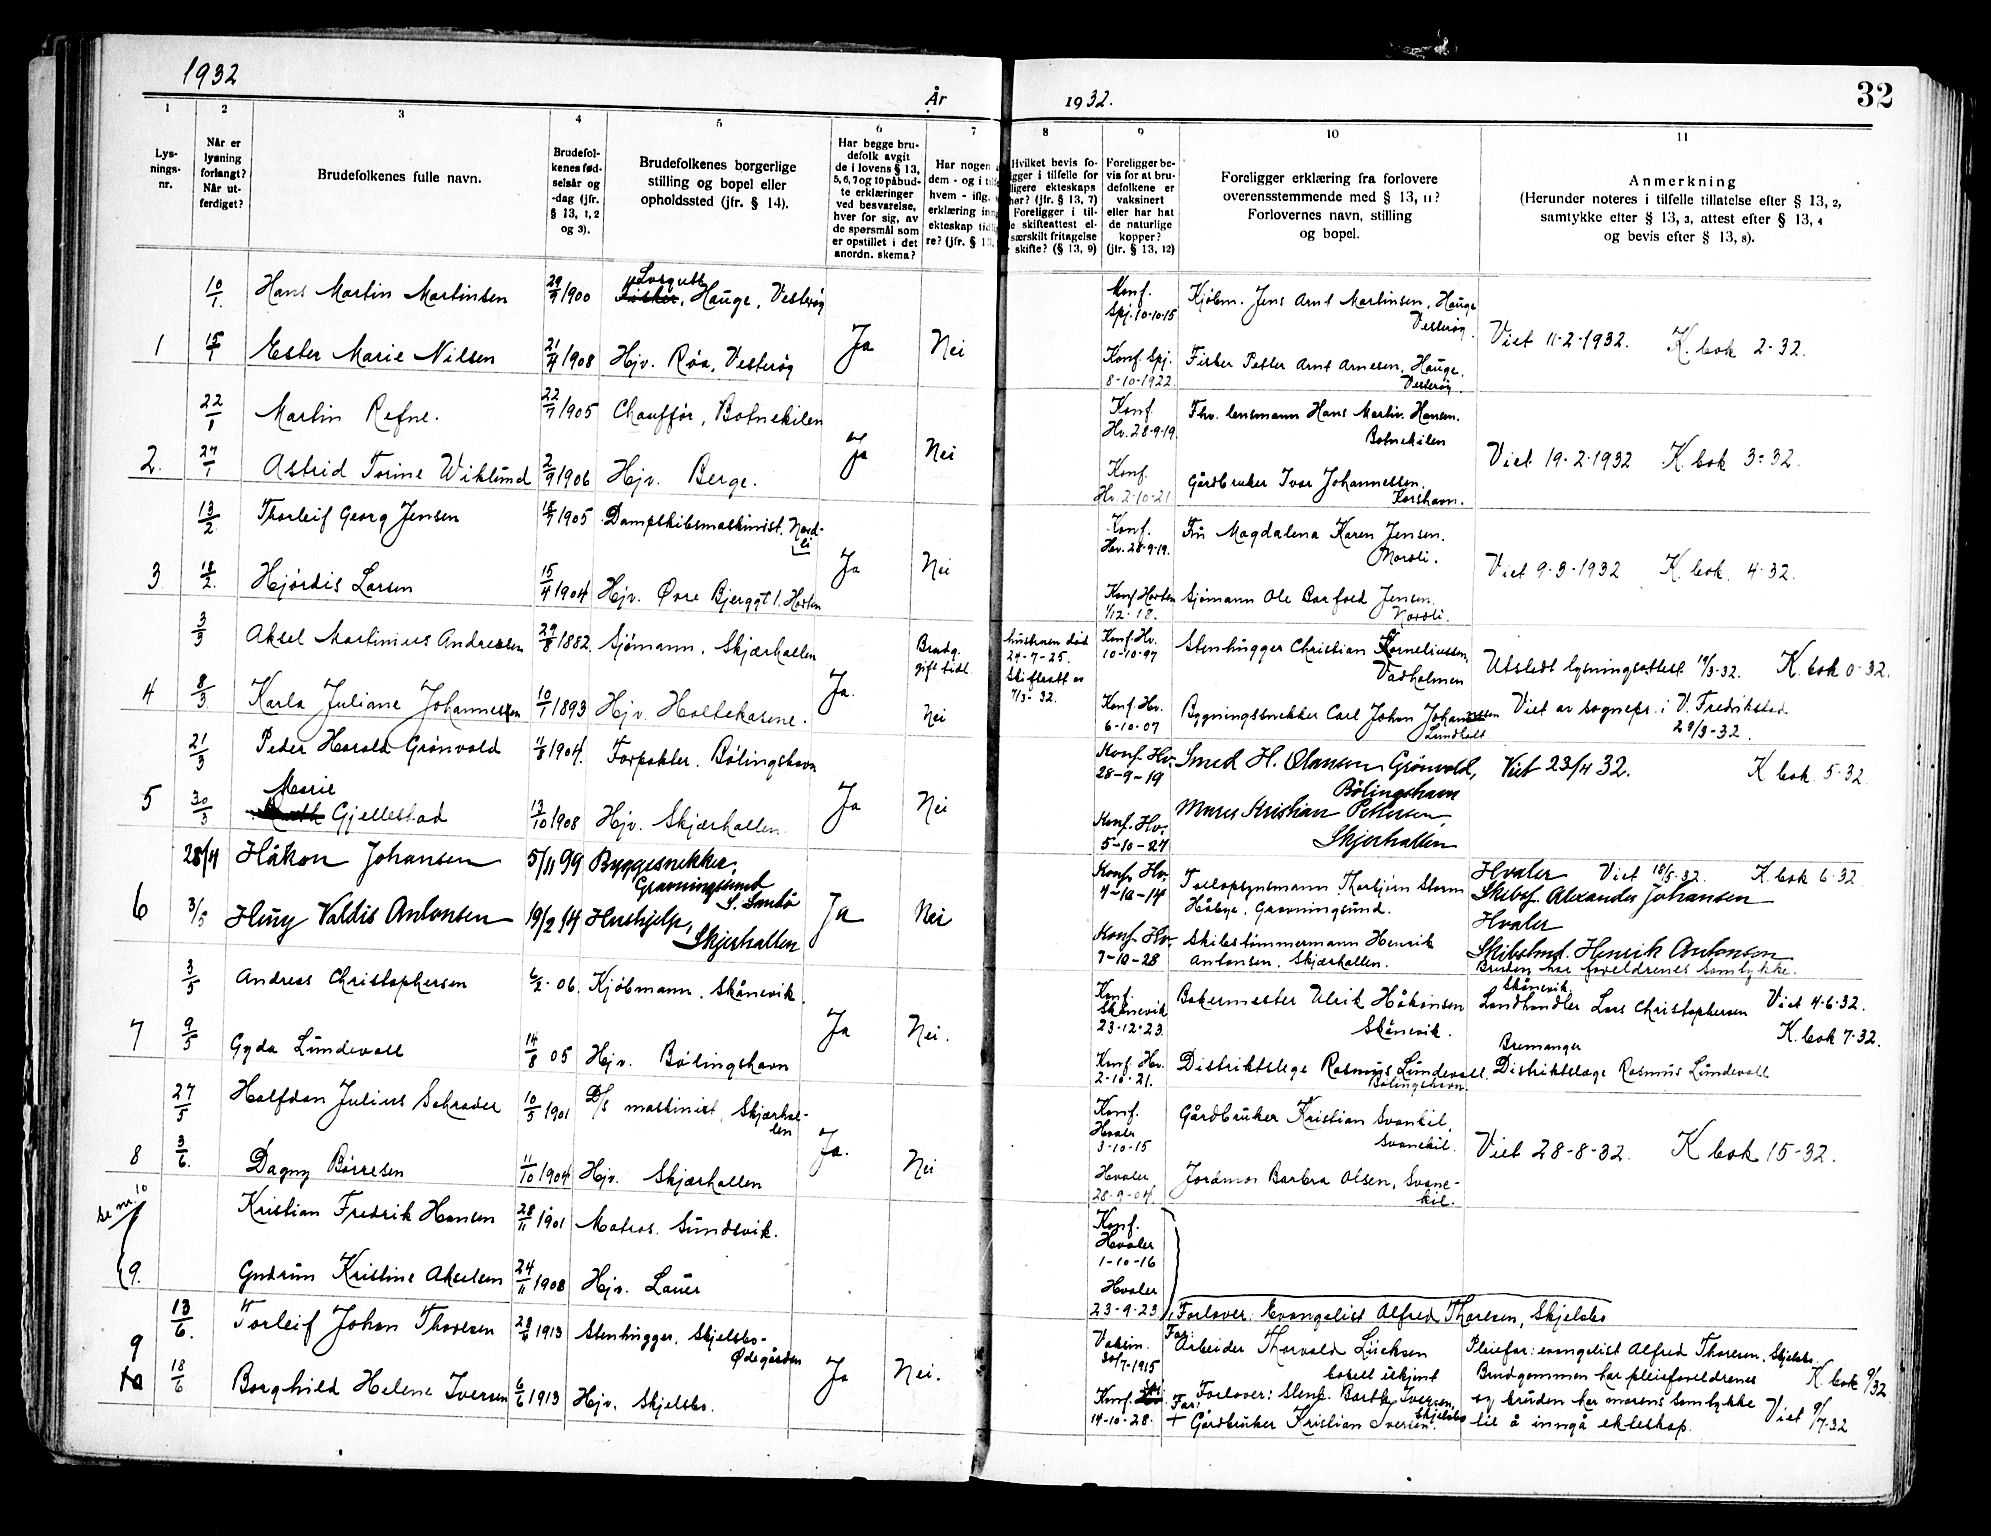 1932
År
1932.
32
1
2
3
4
5
6
7
8
9
10
11
Lys-
nings-
nr.
Når er
lysning
forlangt?
Når ut-
ferdiget?
Brudefolkenes fulle navn.
Brudefol-
kenes fød-
selsår og
-dag (jfr.
§ 13, 1, 2
og 3).
Brudefolkenes borgerlige
stilling og bopel eller
opholdssted (jfr. § 14).
Har begge bru-
defolk avgit
de i lovens § 13,
5, 6, 7 og 10 påbud-
te erklæringer
ved besvarelse,
hver for sig, av
de spørsmål som
er opstillet i det
anordn. skema?
Har nogen
dem - og i
hvem - iflg.
erklæring inn
ekteskap tid
re? (jfr. § 13
Hvilket bevis fo-
ligger i tilfelle for
ligere ekteskaps
hør? (jfr. § 13, 7)
Foreligger i til-
le skifteattest el-
særskilt fritagelse
skifte? (§ 13, 9)
Foreligger be-
vis for at bru-
defolkene er
vaksinert
eller har hat
de naturlige
kopper?
(jfr. § 13, 12)
Foreligger erklæring fra forlovere
overensstemmende med § 13, 11?
Forlovernes navn, stilling
og bopel.
Anmerkning
(Herunder noteres i tilfelle tillatelse efter § 13, 2,
samtykke efter § 13, 3, attest efter § 13, 4
og bevis efter § 13, 8).
10/1. Hans Martin Martinsen 29/9 1900 Losgutt
Fisker, Hauge, Vesterøy Konf.
Spj. 10-10-15 Kjøbm. Jens Arnt Martinsen, Hauge
Vesterøy.
1 15/1 Ester Marie Nilsen 21/4 1908 Hjv. Røa, Vesterøy Ja Nei Konf. Spj.
8-10-1922 Fisker Petter Arnt Arnesen, Hauge.
Vesterøy.
Viet 11-2-1932. K. bok 2-32.
22/1 Martin Refne. 22/7 1905 Chauffør, Botnekilen Konf.
Hv. 28-9-19. Fhv. lensmann Hans Martin Hansen.
Botnekilen
2. 27/1 Astrid Torine Wiklund 2/9 1906 Hjv. Berge. Ja Nei Konf.
Hv. 2-10-21 Gårdbruker Ivar Johannessen.
Korshavn.
Viet 19-2-1932 K. bok 3-32.
13/2 Thorleif Georg Jensen 18/7 1905 Dampskibsmaskinist. Nord-
li Konf.
Hv. 28-9-19. Fru Magdalena Karen Jensen.
Nordli.
3 18/2. Hjørdis Larsen 15/4 1904 Hjv. Øvre Bjerggt 1. Horten Ja Nei Konf Horten
1/12-18. Sjømann Ole Barfod Jensen.
Nordli.
Viet 9-3-1932 K. bok. 4-32.
3/3 Aksel Martinius Andreassen 29/8 1882. Sjømann. Skjærhallen Brudg.
gift tidl. hustruen død
24-7-25.
Skifteatt av
7/3-32. Konf. Hv.
10-10-97 Stenhugger Christian Korneliussen,
Vadholmen
Utstedt lysningsattest 19/3-32. K. bok 0-32.
4 8/3 Karla Juliane Johannessen 10/1 1893 Hjv. Holtekasene. Ja. Nei Konf. Hv.
6-10-07 Bygningssnekker Carl Johan Johannessen
Lundholt
Viet av sognepr. i V. Fredrikstad
20/3-32.
21/3 Peder Harald Grønvold 11/8 1904. Forpakter. Bølingshavn Konf. Hv.
28-9-19 Smed H. Olausen Grønvold,
Bølingshavn
Viet 23/4 32. K bok 5-32.
5 30/3 Marie
Gjellestad 13/10 1908 Hjv. Skjærhallen. Ja Nei Konf. Hv.
5-10-27 Murer Kristian Pettersen,
Skjerhallen
28/4 Håkon Johansen 5/11 99 Byggesnekker,
Gravningsund
S. Sandø Konf. Hv.
4-10-14 Tollopsynsmann Thorbjørn Storm
Håbye. Gravningsund.
Hvaler Viet 18/5-32. K. bok 6-32
Skibsf. Alexander Johansen
6 3/5 Heny Valdis Antonsen 19/2 14 Hushjelp,
Skjerhallen Ja Nei Konf Hv.
7-10-28 Skibstømmermann Henrik
Antonsen. Skjærhallen.
Hvaler
Skibstmd. Henrik Antonsen
Bruden har foreldrenes samtykke.
3/5 Andreas Christophersen 6/2-06. Kjøbmann. Skånevik. Konf.
Skånevik
23-12-23 Bakermester Ulrik Håkonsen
Skånevik.
Skånevik.
Landhandler Lars Christophersen Viet 4-6-32.
K. bok 7-32.
7 9/5 Gyda Lundevall 14/8 05 Hjv. Bølingshavn Ja Nei. Konf. Hv.
2-10-21. Distriktslege Rasmus Lundevall.
Bølingshavn.
Bremanger
Distriktslæge Rasmus Lundevall
27/5 Halfdan Julius Schrøder 10/5 1901 D/S maskinist, Skjærhal-
len Konf.
Hvaler
3-10-15 Gårdbruker Kristian Svankil,
Svanekil.
8 3/6. Dagny Børresen 11/10 1904 Hjv. Skjærhallen Ja. Nei Hvaler
28-9-04. Jordmor Barbra Olsen, Svane-
kil.
Viet 28-8-32. K bok 15-32.
se nr. 10
Kristian Fredrik Hansen 28/11 1901 Matros. Sundsvik. Konf.
Hvaler
1-10-16
9. Gudrun Kristine Akselsen 24/11 1908 Hjv. Lauer Hvaler
23-9-23
13/6. Torleif Johan Thoresen 23/4 1913 Stenhugger. Skjelsbo-
Ødegården Vaksin.
30/7-1915 Forlover: Evangelist Alfred Thoresen, Skjelsbo
Far:
Arbeider Thorvald Lucksen
bosett ukjent
Pleiefar: evangelist Alfred Thoresen, Skjelsbo.
Brudgommen har pleieforeldrenes K. bok 9/32
9
10 18/6 Borghild Helene Iversen 6/6 1913 Hjv. Skjelsbo. Ja Nei. Konf. Spj.
14-10-28. Forlover: Stenh. Barthy Iversen, Skjelsbo
Far:
+ Gårdbruker Kristian Iversen.
og bruden har morens samtykke Viet 9/7-32
til å inngå ekteskap.